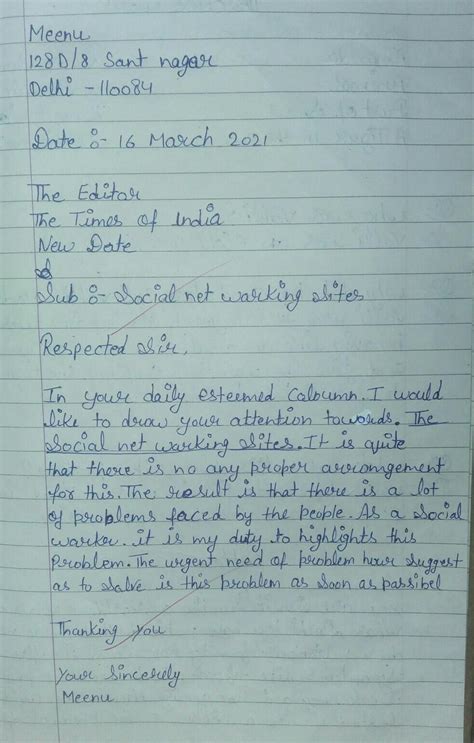 Meenu
128D/8 Sant nagar
Delhi - 110084
Date :- 16 March 2021
The Editor
The Times of India
New Date
Sub :- Social net warking Sites
Respected Sir,
In your daily esteemed Caloumn. I would
like to draw your attention towords. The
Social net warking Sites. It is quite
that there is no any proper arrongement
for this. The result is that there is a lot
of problems faced by the people. As a Social
warker. it is my duty to highlights this
Problem. The urgent need of problem hour suggest
as to Salve is this problem as soon as passibel
Thanking you
Your Sincerely
Meenu